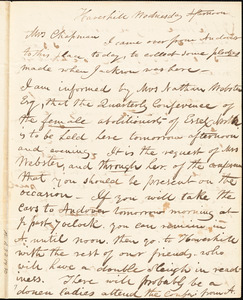 Haverhill Wednesday afternoon
Mrs Chapman
I came over from Andover
to this place today to collect some pledges
made when Jackson was here —
I am informed by Mrs Nathan Webster
Esq, that the Quarterly Conference of
the female abolitionists of Essex North
is to be held here tomorrow afternoon
and evening. It is the request of Mrs
Webster, and through her, of the
that you should be present on the
occasion — If you will take the
cars to Andover tomorrow morning at
o'clock, you can remain in
A. until noon, then go to Haverhill
with the rest of our friends, who
will have a double sleigh in read
iness. There will probably be a
dozen ladies attend the Conf. from A.